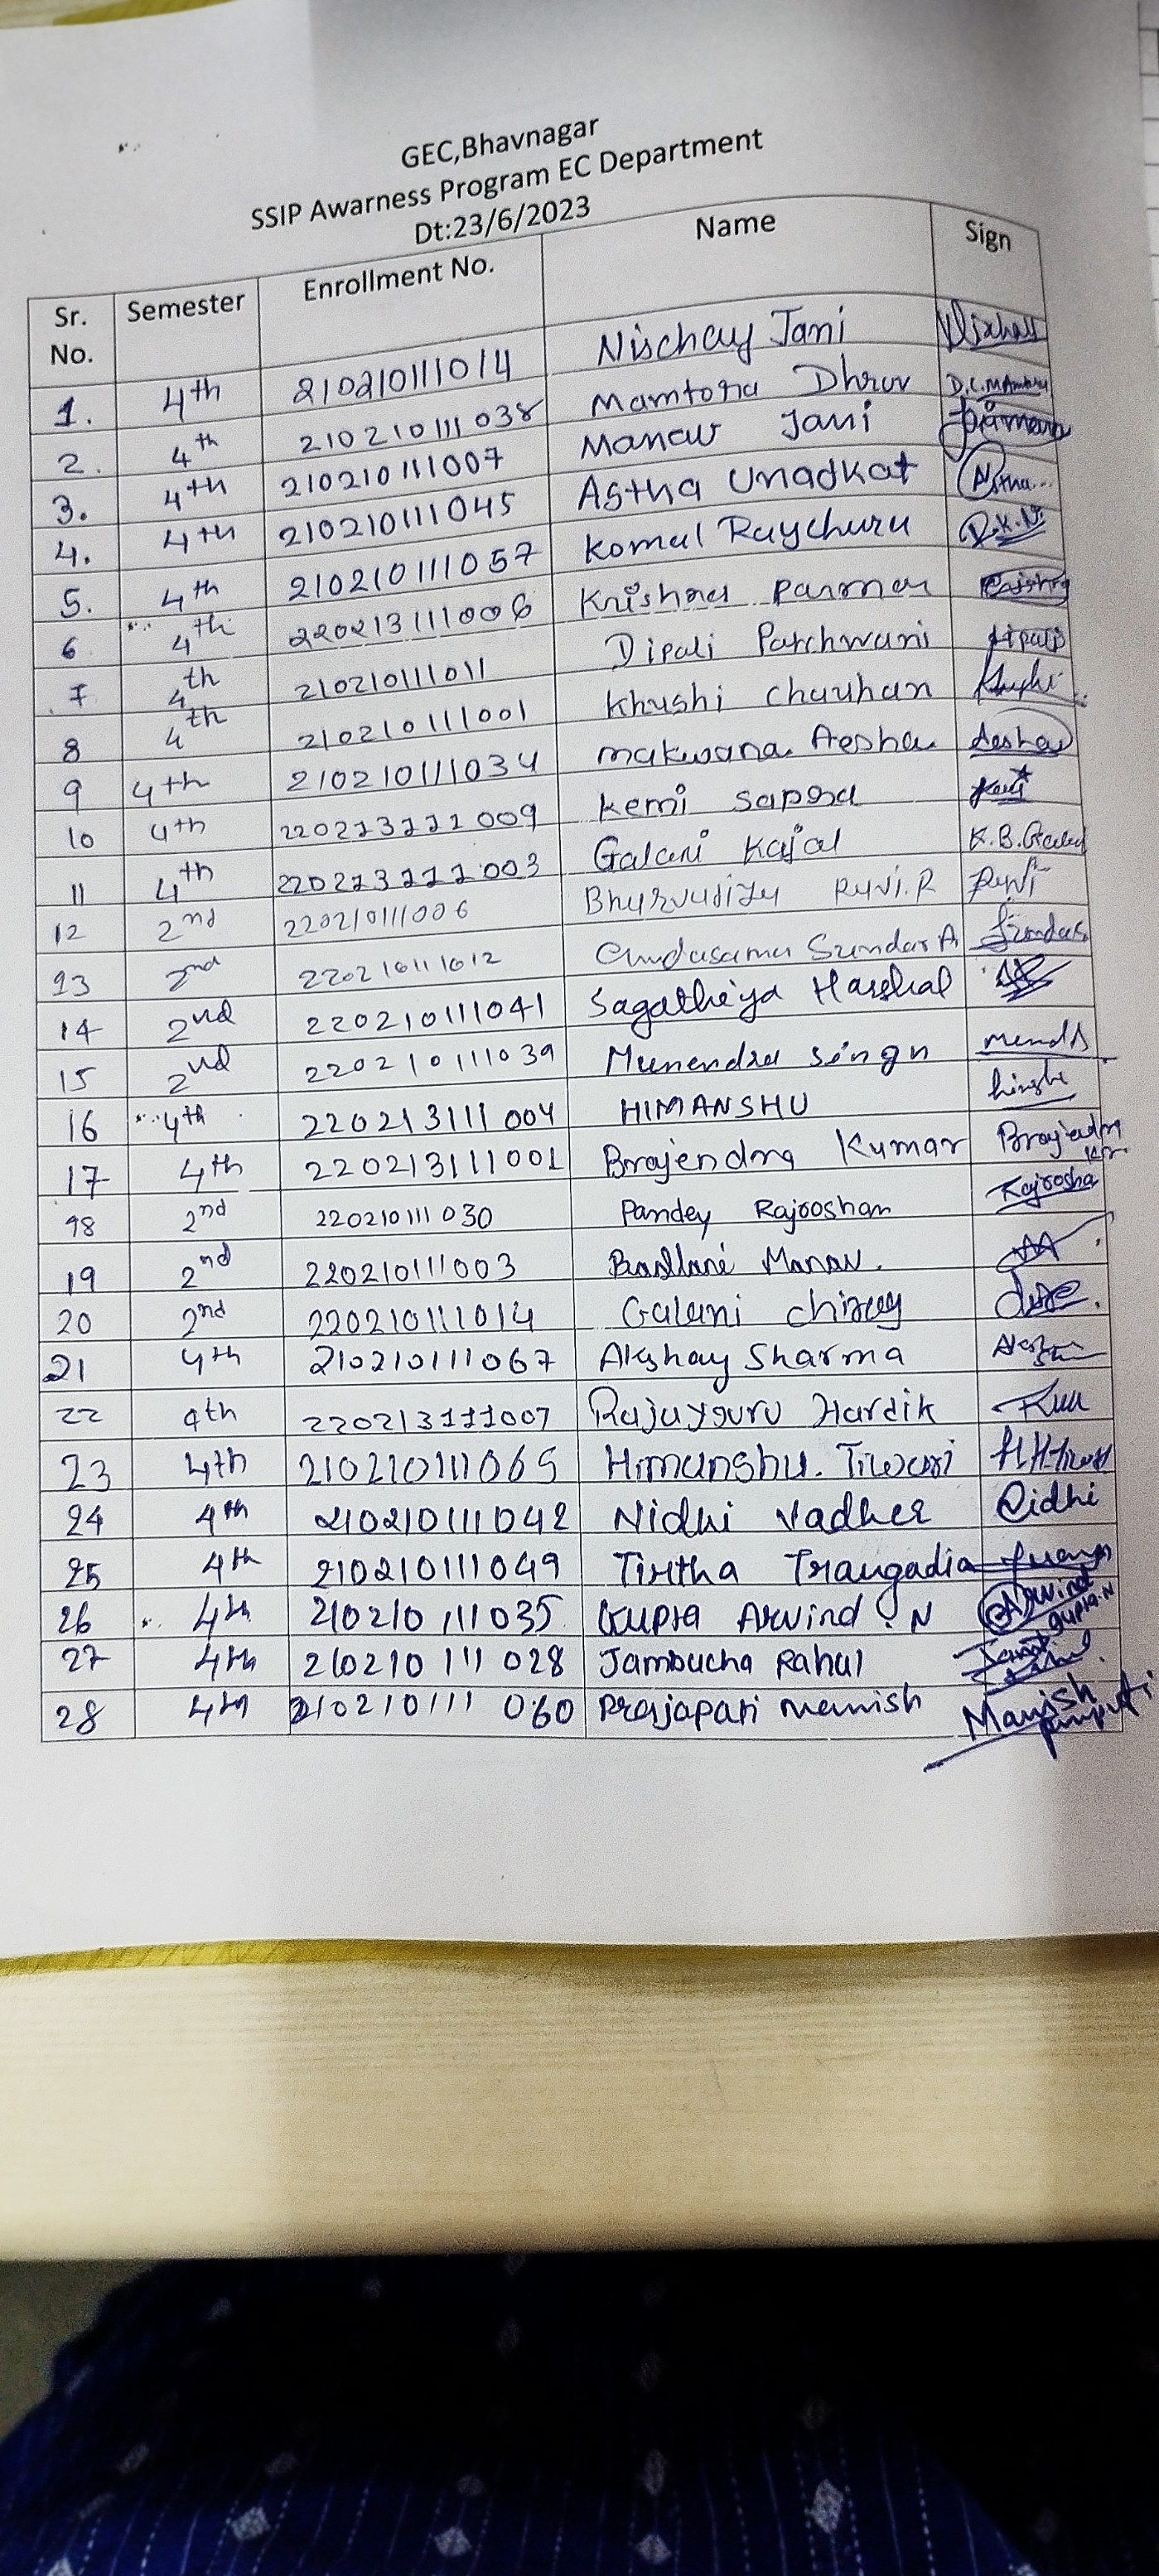 GEC,Bhavnagar
SSIP Awarness Program EC Department
Dt:23/6/2023
Sr. No. Semester Enrollment No. Name Sign
1. 4th 210210111014 Nischay Jani
2. 4th 210210111038 Mamtora Dhruv
3. 4th 210210111007 Manav Jani
4. 4th 210210111045 Astha Unadkat Astha...
5. 4th 210210111057 Komal Raychura
6 4th 220213111006 Krishna Parmar
7 4th 210210111011 Dipali Parchwani dipali
8 4th 210210111001 Khushi Chauhan
9 4th 210210111034 makwana Aesha Aesha
10 4th 220213111009 Kemi sapra
11 4th 220213111003 Galani Kajal K.B.Galani
12 2nd 220210111006 Ravi.R Ravi
13 2nd 220210111012 Chudasama Sundar A
14 2nd 220210111041 Sagatheiya Harshal
15 2nd 220210111039 Munendra Singh
16 4th 220213111004 HIMANSHU
17 4th 220213111001 Brajendra Kumar Brajendra Kr.
18 2nd 220210111030 Pandey Rajroshan Rajrosha
19 2nd 220210111003 Manav.
20 2nd 220210111014 Galani Chirag
21 4th 210210111067 Akshay Sharma
22 4th 220213111007 Rajyguru Hardik
23 4th 210210111065 Himanshu. Tiwari H.H.Tiwari
24 4th 210210111042 Nidhi Vadher Nidhi
25 4th 210210111049 Tirtha Trangadia
26 4th 210210111035 Gupta Arvind . N Arvind gupta.N
27 4th 210210111028 Jambucha Rahul
28 4th 210210111060 Prajapati manish Manish